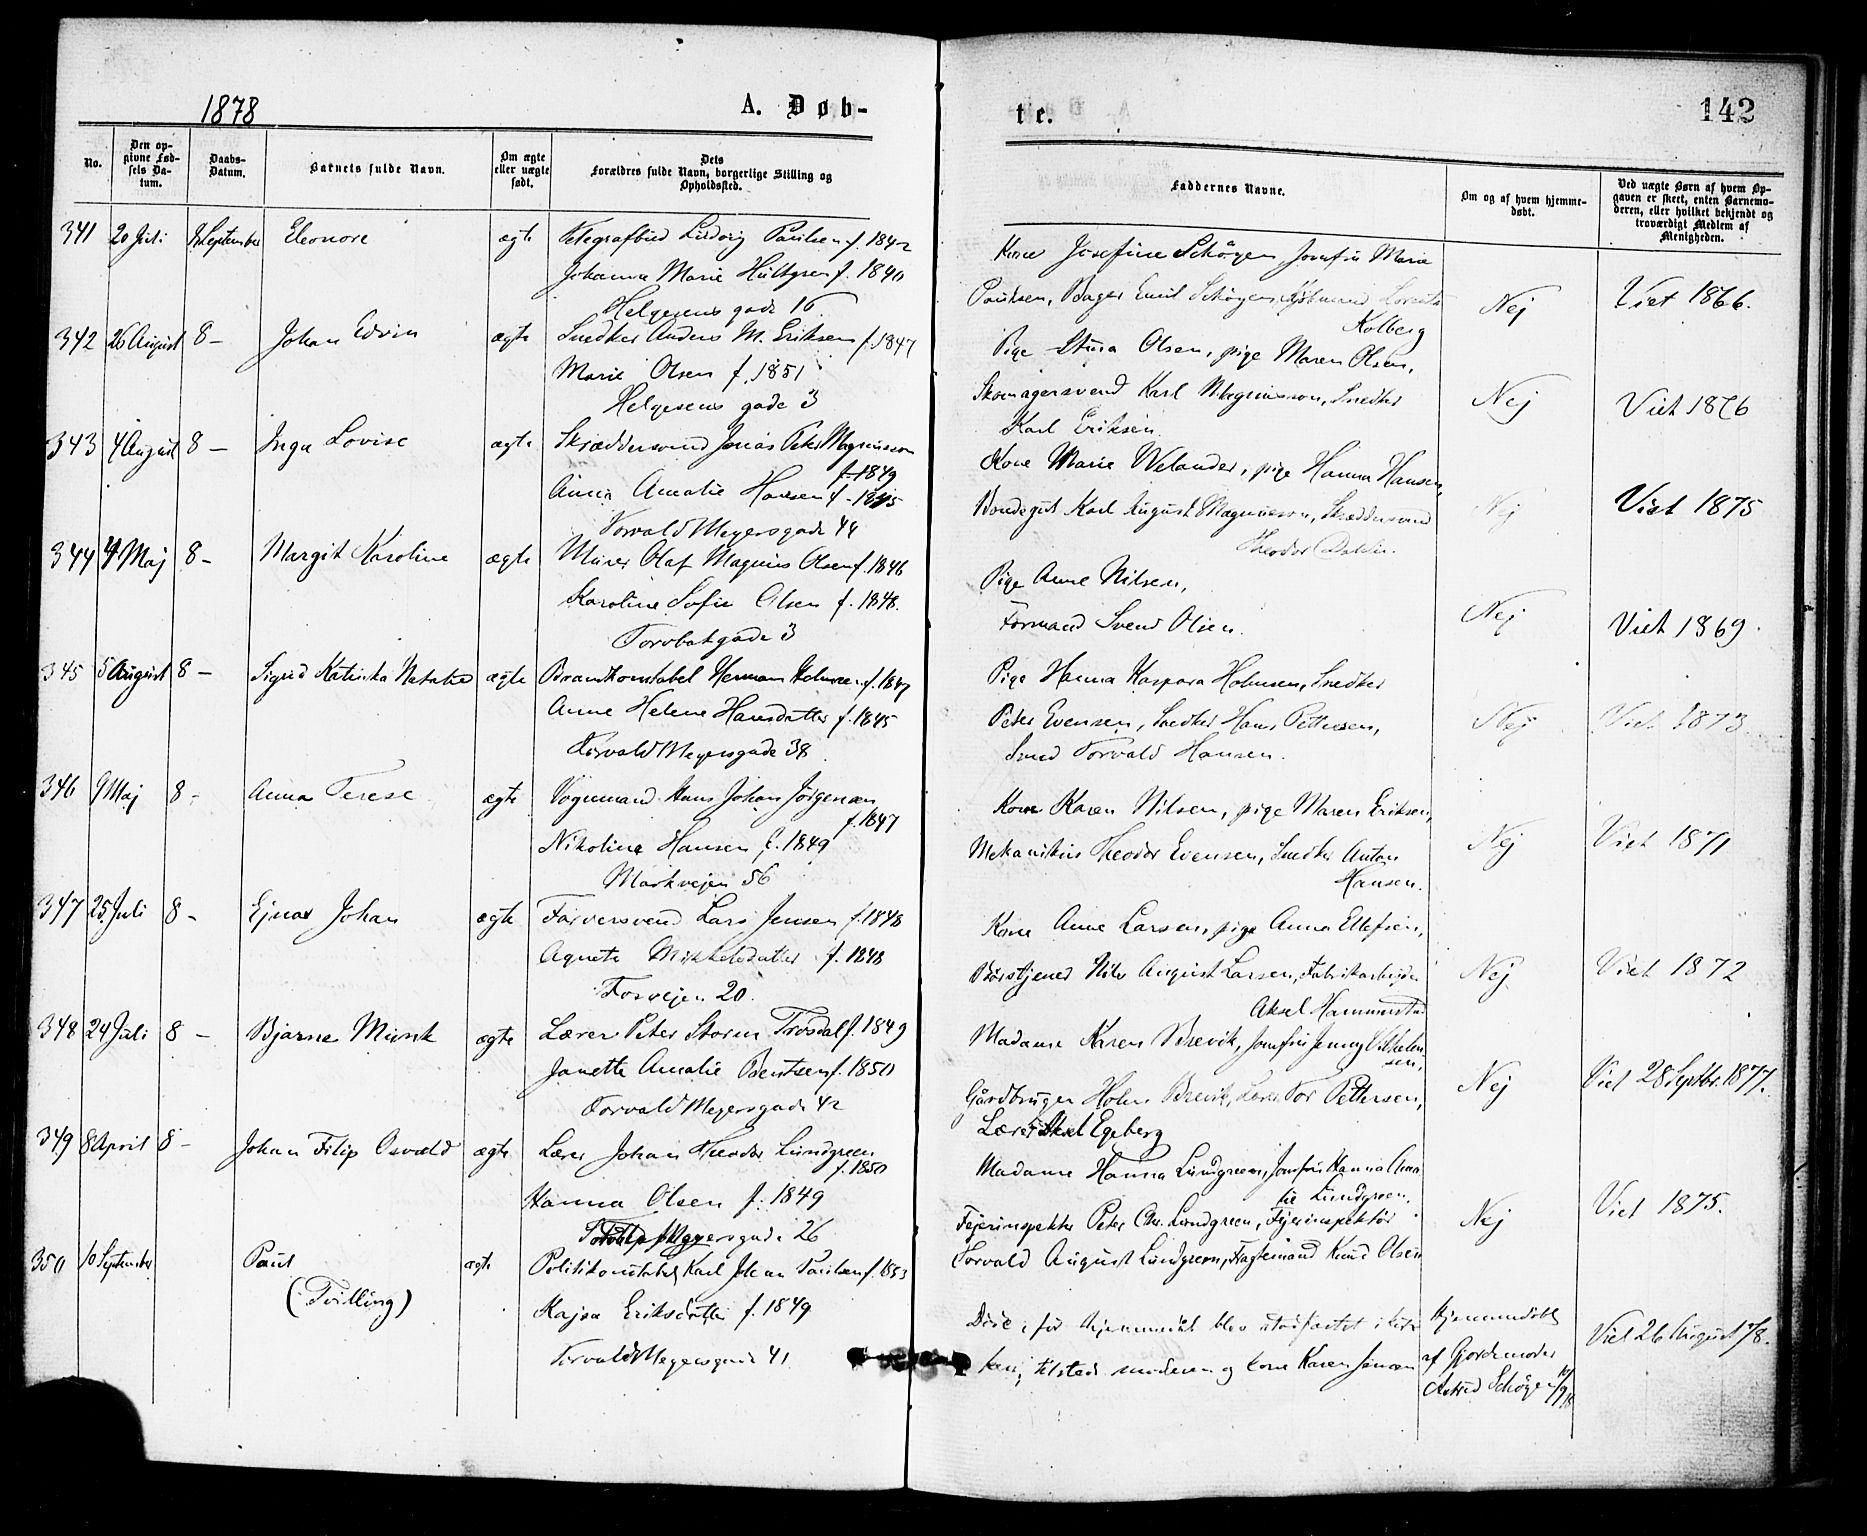 1878
A. Døb-
te.
142
No.
Den op-
givne Fød-
sels Da-
tum.
Daabs-
Datum.
Barnets fulde Navn.
Om ægte
eller uægte
født.
Dets
Forældres fulde Navn, borgerlige Stilling og
Opholdssted.
Faddernes Navne.
Om og af hvem hjemme-
døbt.
Ved uægte Børn af hvem Op-
gaven er skeet, enten Barnemo-
deren, eller hvilket bekjendt og
troværdigt Medlem af
Menigheden.
341 20 Juli 8 September Eleonore ægte Telegrafbud Ludvig Paulsen f. 1842
Johanna Marie Hultgren f. 1840
Helgesens gade 16
Kone Josefine Schøyen, Jomfru Marie
Paulsen, Bager Emil Schøyen,
Kolberg
Nej
Viet 1866.
342 26 August 8 – Johan Edvin ægte Snedker Anders M. Eriksen f. 1847
Marie Olsen f. 1851
Helgesens gade 3
Pige Stina Olsen, pige Maren Olsen,
Skomagersvend Karl Magnusson, Snedker
Karl Eriksen
Nej
Viet 1876
343 4 August 8 – Inga Lovise ægte Skræddersvend Jonas Peter Magnusson
f. 1849
Anna Amalie Hansen f. 1845
Torvald Meyersgade 44
Kone Marie Welander, pige Hanna Hansen,
Bondegut Karl August Magnusson, Skræddersvend
Theodor
Nej
Viet 1875
344 4 Maj 8 – Margit Karoline ægte Murer Olaf Magnus Olsen f. 1846
Karoline Sofie Olsen f. 1848.
Torvbakgade 3
Pige Anne Nilsen,
Formand Svend Olsen.
Nej
Viet 1869.
345 5 August 8 – Sigrid Katinka Natalia ægte Brandkonstabel Herman Holmsen f. 1847
Anne Helene Hansdatter f. 1845
Torvald Meyersgade 38
Pige Hanna Kaspara Holmsen, Snedker
Peter Evensen, Snedker Hans Pettersen,
Smed Torvald Hansen.
Nej
Viet 1873
346 9 Maj 8 – Anna Terese ægte Vognmand Hans Johan Jørgensen
f. 1847
Nikoline Hansen f. 1849
Markvejen 56
Kone Karen Nilsen, pige Maren Eriksen,
Mekanikus Theodor Evensen, Snedker Anton
Hansen.
Nej
Viet 1871
347 25 Juli 8 – Ejnar Johan ægte Farversvend Lars Jensen f. 1848
Agnete Mikkelsdatter f. 1848
Fosvejen 20.
Kone Anne Larsen, pige Anna Ellefsen,
Børstjener Nils August Larsen, Fabrikarbejder
Aksel Hammerstad
Nej
Viet 1872
348 24 Juli 8 – Bjarne Munk ægte Lærer Peter Storm Trosdal f. 1849
Janette Amalie Bentsen f. 1850
Torvald Meyersgade 42
Madame Karen Brevik, Jomfru Jenny Vilhelm
sen,
Gårdbruger Holm Brevik, Lærer Tor Pettersen,
Lærer Aksel Egeberg
Nej
Viet 28 Septbr. 1877.
349 8 April 8 – Johan Filip Osvald ægte Lærer Johan Theodor Lundgreen
f. 1850
Hanna Olsen f. 1849
Meyersgade 26
Madame Hanna Lundgreen, Jomfru Hanna Ama
lie Lundgreen.
Fejerinspektør Peter Chr. Lundgreen, Fejerinspektør
Torvald August Lundgreen, Fagtemand Knud Olsen
Nej
Viet 1875.
350 10 September Paul ægte Politikonstabel Karl Johan Paulsen f. 1853
(Tvilling)
Kajsa Eriksdatter f. 1849
Torvald Meyersgade 41.
Døde, før hjemmedåb blev stadfæstet i kir
ken; tilstede moderen og kone Karen Jensen
Hjemmedøbt
af Gjordemoder
Astrid Schøyen 10/9 78
Viet 26 August 78.